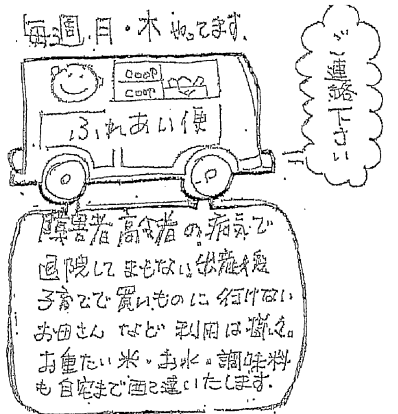 毎週月・水やってます。
ご連絡下さい
coop
coop
ふれあい便
障害者高令者の病気で
退院してまもない出産後
子育てで買いものに行けない
お母さんなど利用は
お重たい米・お水・調味料
も自宅まで配達いたします。